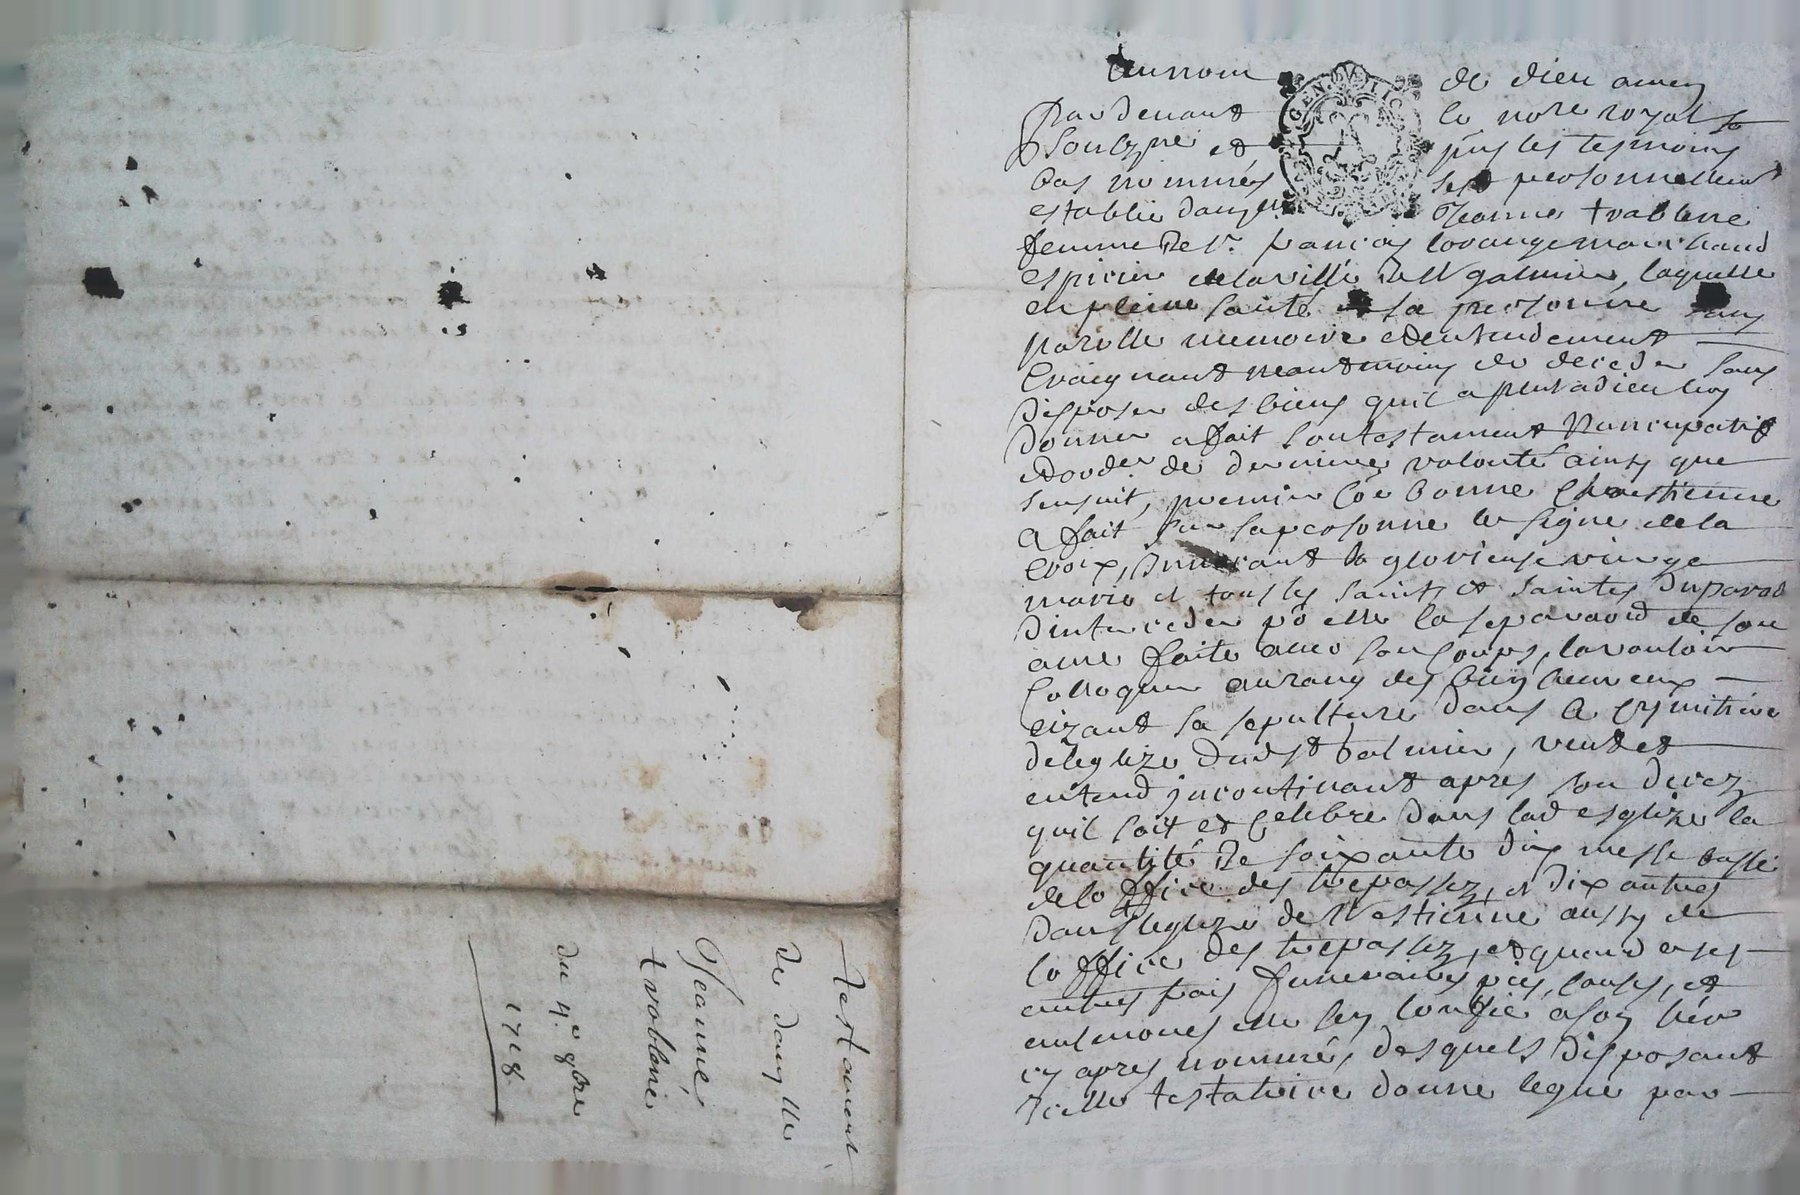 Au nom de dieu amen
Par devant le nore royal
soubzne et pns les tesmoins
bas nommés sest personnellemt
establie damlle Jeanne trablene
femme de sr. francois marchand
espicier de la ville de st galmier, laquelle
en pleine santé de sa personne sens
parolle memoire et entendement
Craignant neantmoins de deceder sans
disposer des biens quil a plut a dieu luy
donner a fait son testament Nuncupatif
et ordre de derniere volonté ainsy que
sensuit, premier Coe bonne Chrestienne
a fait sur sa personne le signe de la
Croix, Invocant la glorieuse vierge
marie et tous les saints et saintes du parad
dinterceder po elle la separaon de son
ame faite avec son Corps, la vouloir
Colloquer au rang des bien heureux
eizant sa sepulture dans le cymitiere
de leglize dud st Galmier, veut et
entend jncontinant apres son decez
quil soit et Celebre dans lad esglize la
quantité de soixante dix messe basse
de loffice des trepassez, et dix autres
dans leglize de st estienne aussy de
loffice des trepassez, et quand a ses
autres frais funeraires pies, causes, et
aulmones elle sen confie a son her
cy apres nommé, desquels disposant
Icelle testatrice donne legue par
Testament
de damlle
Jeanne
trablene
du 4e 8bre
1718